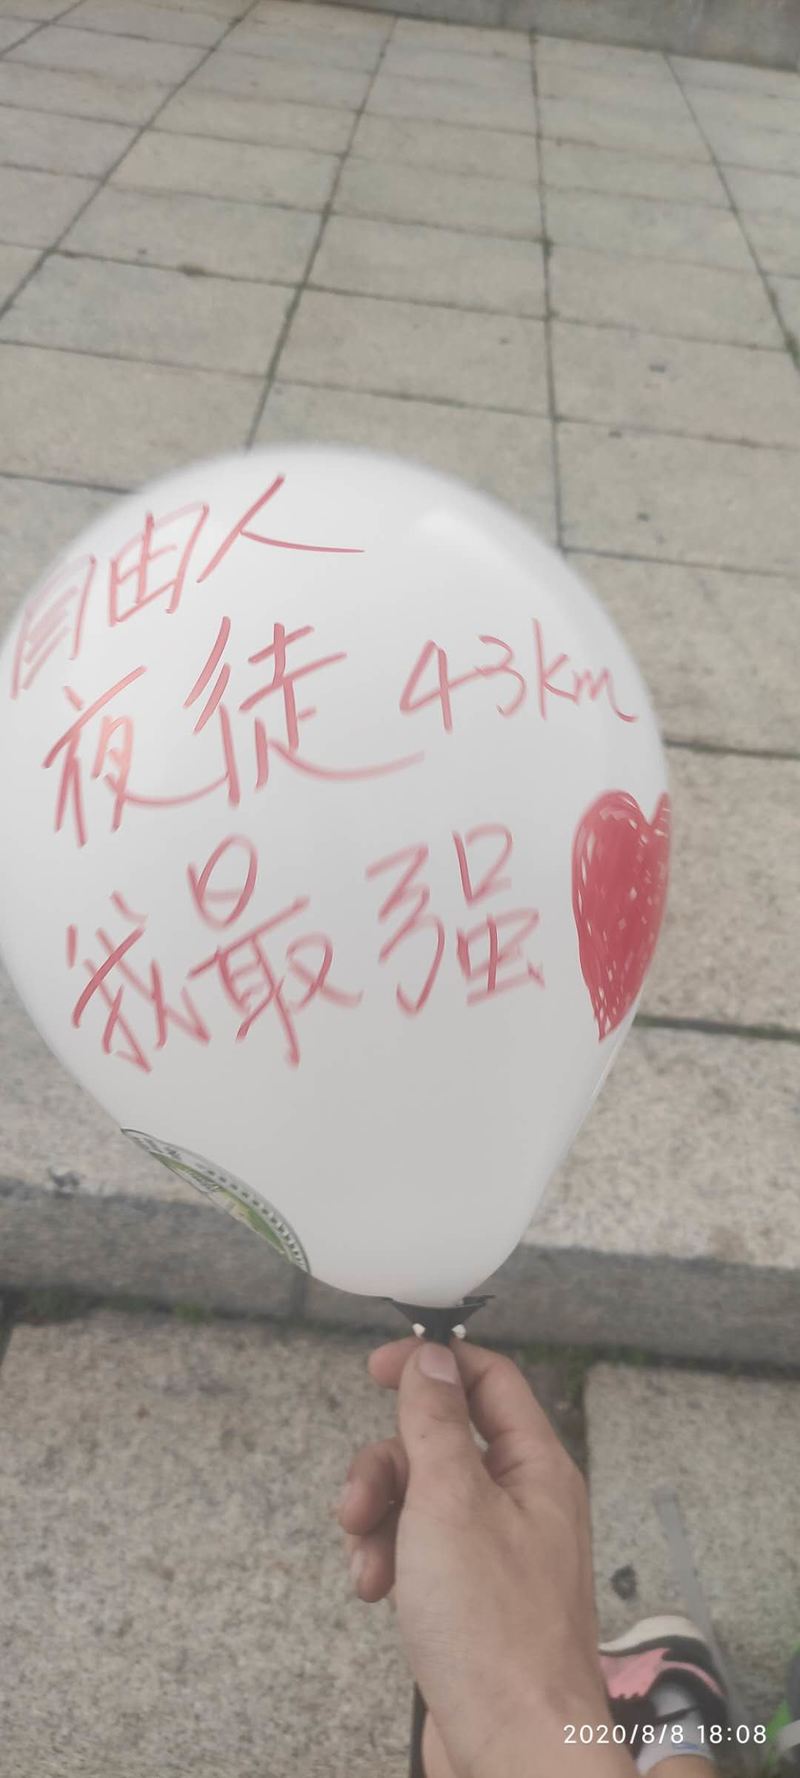 自由人
夜徒 43km
我最强
2020/8/8 18:08